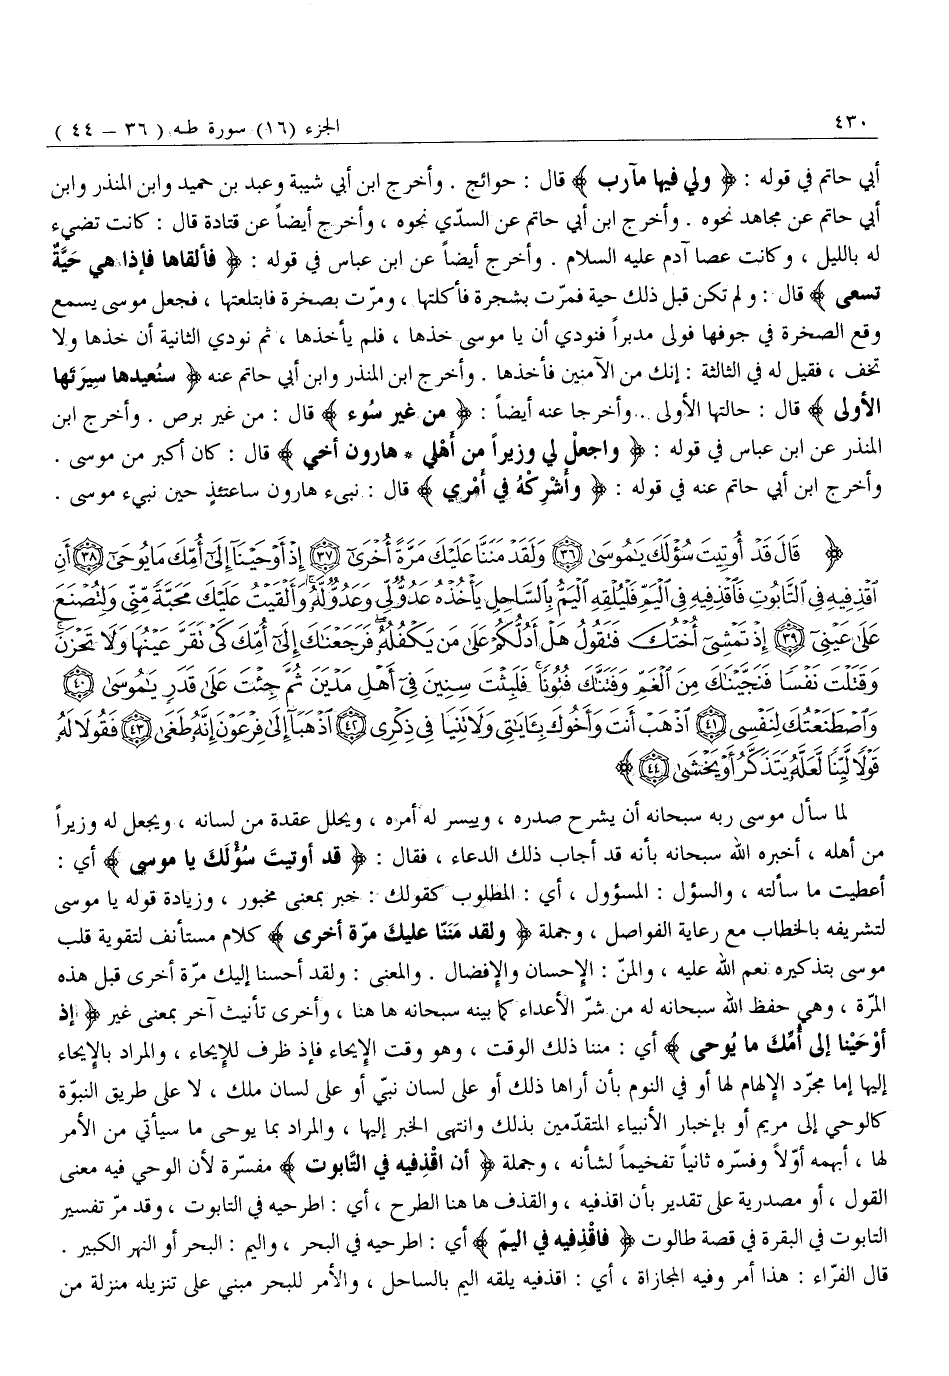 ٤٣٠
الجزء (١٦) سورة طه ( ٣٦ – ٤٤ )
أبي حاتم في قوله : ﴿ ولي فيها مآرب ﴾ قال : حوائج . وأخرج ابن أبي شيبة وعبد بن حميد وابن المنذر وابن
أبي حاتم عن مجاهد نحوه . وأخرج ابن أبي حاتم عن السدّي نحوه ، وأخرج أيضاً عن قتادة قال : كانت تضيء
له بالليل ، وكانت عصا آدم عليه السلام . وأخرج أيضاً عن ابن عباس في قوله : ﴿ فألقاها فإذا هي حَيَّةٌ
تسعى ﴾ قال : ولم تكن قبل ذلك حية فمرّت بشجرة فأكلتها ، ومرّت بصخرة فابتلعتها ، فجعل موسى يسمع
وقع الصخرة في جوفها فولى مدبراً فنودي أن يا موسى خذها ، فلم يأخذها ، ثم نودي الثانية أن خذها ولا
تخف ، فقيل له في الثالثة : إنك من الآمنين فأخذها . وأخرج ابن المنذر وابن أبي حاتم عنه ﴿ سنُعيدها سِيرَتَها
الأولى ﴾ قال : حالتها الأولى . وأخرجا عنه أيضاً : ﴿ من غير سُوء ﴾ قال : من غير برص . وأخرج ابن
المنذر عن ابن عباس في قوله : ﴿ واجعلْ لي وزيراً من أَهْلي * هارون أخي ﴾ قال : كان أكبر من موسى .
وأخرج ابن أبي حاتم عنه في قوله : ﴿ وأَشْرِكْهُ في أَمْري ﴾ قال : نبىء هارون ساعتئذٍ حين نبيء موسى .
﴿ قَالَ قَدْ أُوتِيتَ سُؤْلَكَ يَٰمُوسَىٰ ٣٦ وَلَقَدْ مَنَنَّا عَلَيْكَ مَرَّةً أُخْرَىٰٓ ٣٧ إِذْ أَوْحَيْنَآ إِلَىٰٓ أُمِّكَ مَا يُوحَىٰٓ ٣٨ أَنِ
ٱقْذِفِيهِ فِي ٱلتَّابُوتِ فَٱقْذِفِيهِ فِي ٱلْيَمِّ فَلْيُلْقِهِ ٱلْيَمُّ بِٱلسَّاحِلِ يَأْخُذْهُ عَدُوٌّ لِّي وَعَدُوٌّ لَّهُۥ ۚ وَأَلْقَيْتُ عَلَيْكَ مَحَبَّةً مِّنِّي وَلِتُصْنَعَ
عَلَىٰ عَيْنِيٓ ٣٩ إِذْ تَمْشِيٓ أُخْتُكَ فَتَقُولُ هَلْ أَدُلُّكُمْ عَلَىٰ مَن يَكْفُلُهُۥ ۖ فَرَجَعْنَٰكَ إِلَىٰٓ أُمِّكَ كَيْ تَقَرَّ عَيْنُهَا وَلَا تَحْزَنَ ۚ
وَقَتَلْتَ نَفْسًا فَنَجَّيْنَٰكَ مِنَ ٱلْغَمِّ وَفَتَنَّٰكَ فُتُونًا ۚ فَلَبِثْتَ سِنِينَ فِيٓ أَهْلِ مَدْيَنَ ثُمَّ جِئْتَ عَلَىٰ قَدَرٍ يَٰمُوسَىٰ ٤٠
وَٱصْطَنَعْتُكَ لِنَفْسِي ٤١ ٱذْهَبْ أَنتَ وَأَخُوكَ بِـَٔايَٰتِي وَلَا تَنِيَا فِي ذِكْرِي ٤٢ ٱذْهَبَآ إِلَىٰ فِرْعَوْنَ إِنَّهُۥ طَغَىٰ ٤٣ فَقُولَا لَهُۥ
قَوْلًا لَّيِّنًا لَّعَلَّهُۥ يَتَذَكَّرُ أَوْ يَخْشَىٰ ٤٤ ﴾
لما سأل موسى ربه سبحانه أن يشرح صدره ، وييسر له أمره ، ويحلل عقدة من لسانه ، ويجعل له وزيراً
من أهله ، أخبره الله سبحانه بأنه قد أجاب ذلك الدعاء ، فقال : ﴿ قد أوتيتَ سُؤْلَكَ يا موسى ﴾ أي :
أعطيت ما سألته ، والسؤل : المسؤول ، أي : المطلوب كقولك : خبر بمعنى مخبور ، وزيادة قوله يا موسى
لتشريفه بالخطاب مع رعاية الفواصل ، وجملة ﴿ ولقد مَنَنّا عليكَ مرّة أخرى ﴾ كلام مستأنف لتقوية قلب
موسى بتذكيره نعم الله عليه ، والمنّ : الإحسان والإفضال . والمعنى : ولقد أحسنا إليك مرّة أخرى قبل هذه
المرّة ، وهي حفظ الله سبحانه له من شرّ الأعداء كما بينه سبحانه ها هنا ، وأخرى تأنيث آخر بمعنى غير ﴿ إذ
أوْحَيْنا إلى أُمِّكَ ما يُوحى ﴾ أي : مننا ذلك الوقت ، وهو وقت الإيحاء فإذ ظرف للإيحاء ، والمراد بالإيحاء
إليها إما مجرّد الإلهام لها أو في النوم بأن أراها ذلك أو على لسان نبيّ أو على لسان ملك ، لا على طريق النبوّة
كالوحي إلى مريم أو بإخبار الأنبياء المتقدّمين بذلك وانتهى الخبر إليها ، والمراد بما يوحى ما سيأتي من الأمر
لها ، أبهمه أوّلاً وفسّره ثانياً تفخيماً لشأنه ، وجملة ﴿ أن اقْذفيه في التَّابوت ﴾ مفسّرة لأن الوحي فيه معنى
القول ، أو مصدرية على تقدير بأن اقذفيه ، والقذف ها هنا الطرح ، أي : اطرحيه في التابوت ، وقد مرّ تفسير
التابوت في البقرة في قصة طالوت ﴿ فاقْذِفيه في اليمّ ﴾ أي : اطرحيه في البحر ، واليم : البحر أو النهر الكبير .
قال الفرّاء : هذا أمر وفيه المجازاة ، أي : اقذفيه يلقه اليم بالساحل ، والأمر للبحر مبني على تنزيله منزلة من